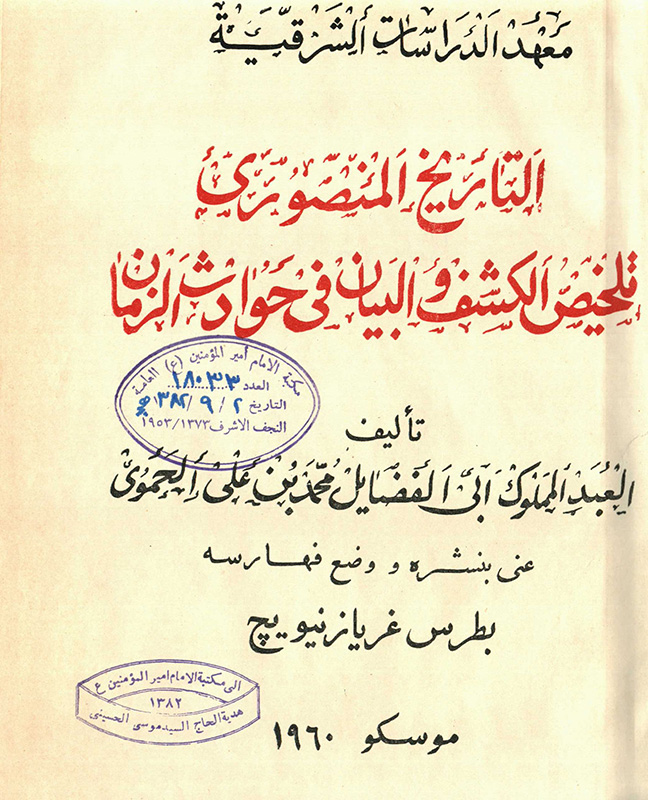 معهد الدراسات الشرقية
التاريخ المنصوري
تلخيص الكشف و البيان في حوادث الزمان
مكتبة الامام أمير المؤمنين (ع) العامة
العدد ١٨٠٣٣
التاريخ ٢ / ٩ / ١٣٨٢
النجف الاشرف ١٣٧٣/١٩٥٣
تأليف
العبد المملوك ابى الفضايل محمد بن على الحموى
عنى بنشره و وضع فهارسه
بطرس غريازنيويچ
الى مكتبة الامام امير المؤمنين ع
١٣٨٢
هدية الحاج السيد موسى الحسينى
موسكو ١٩٦٠